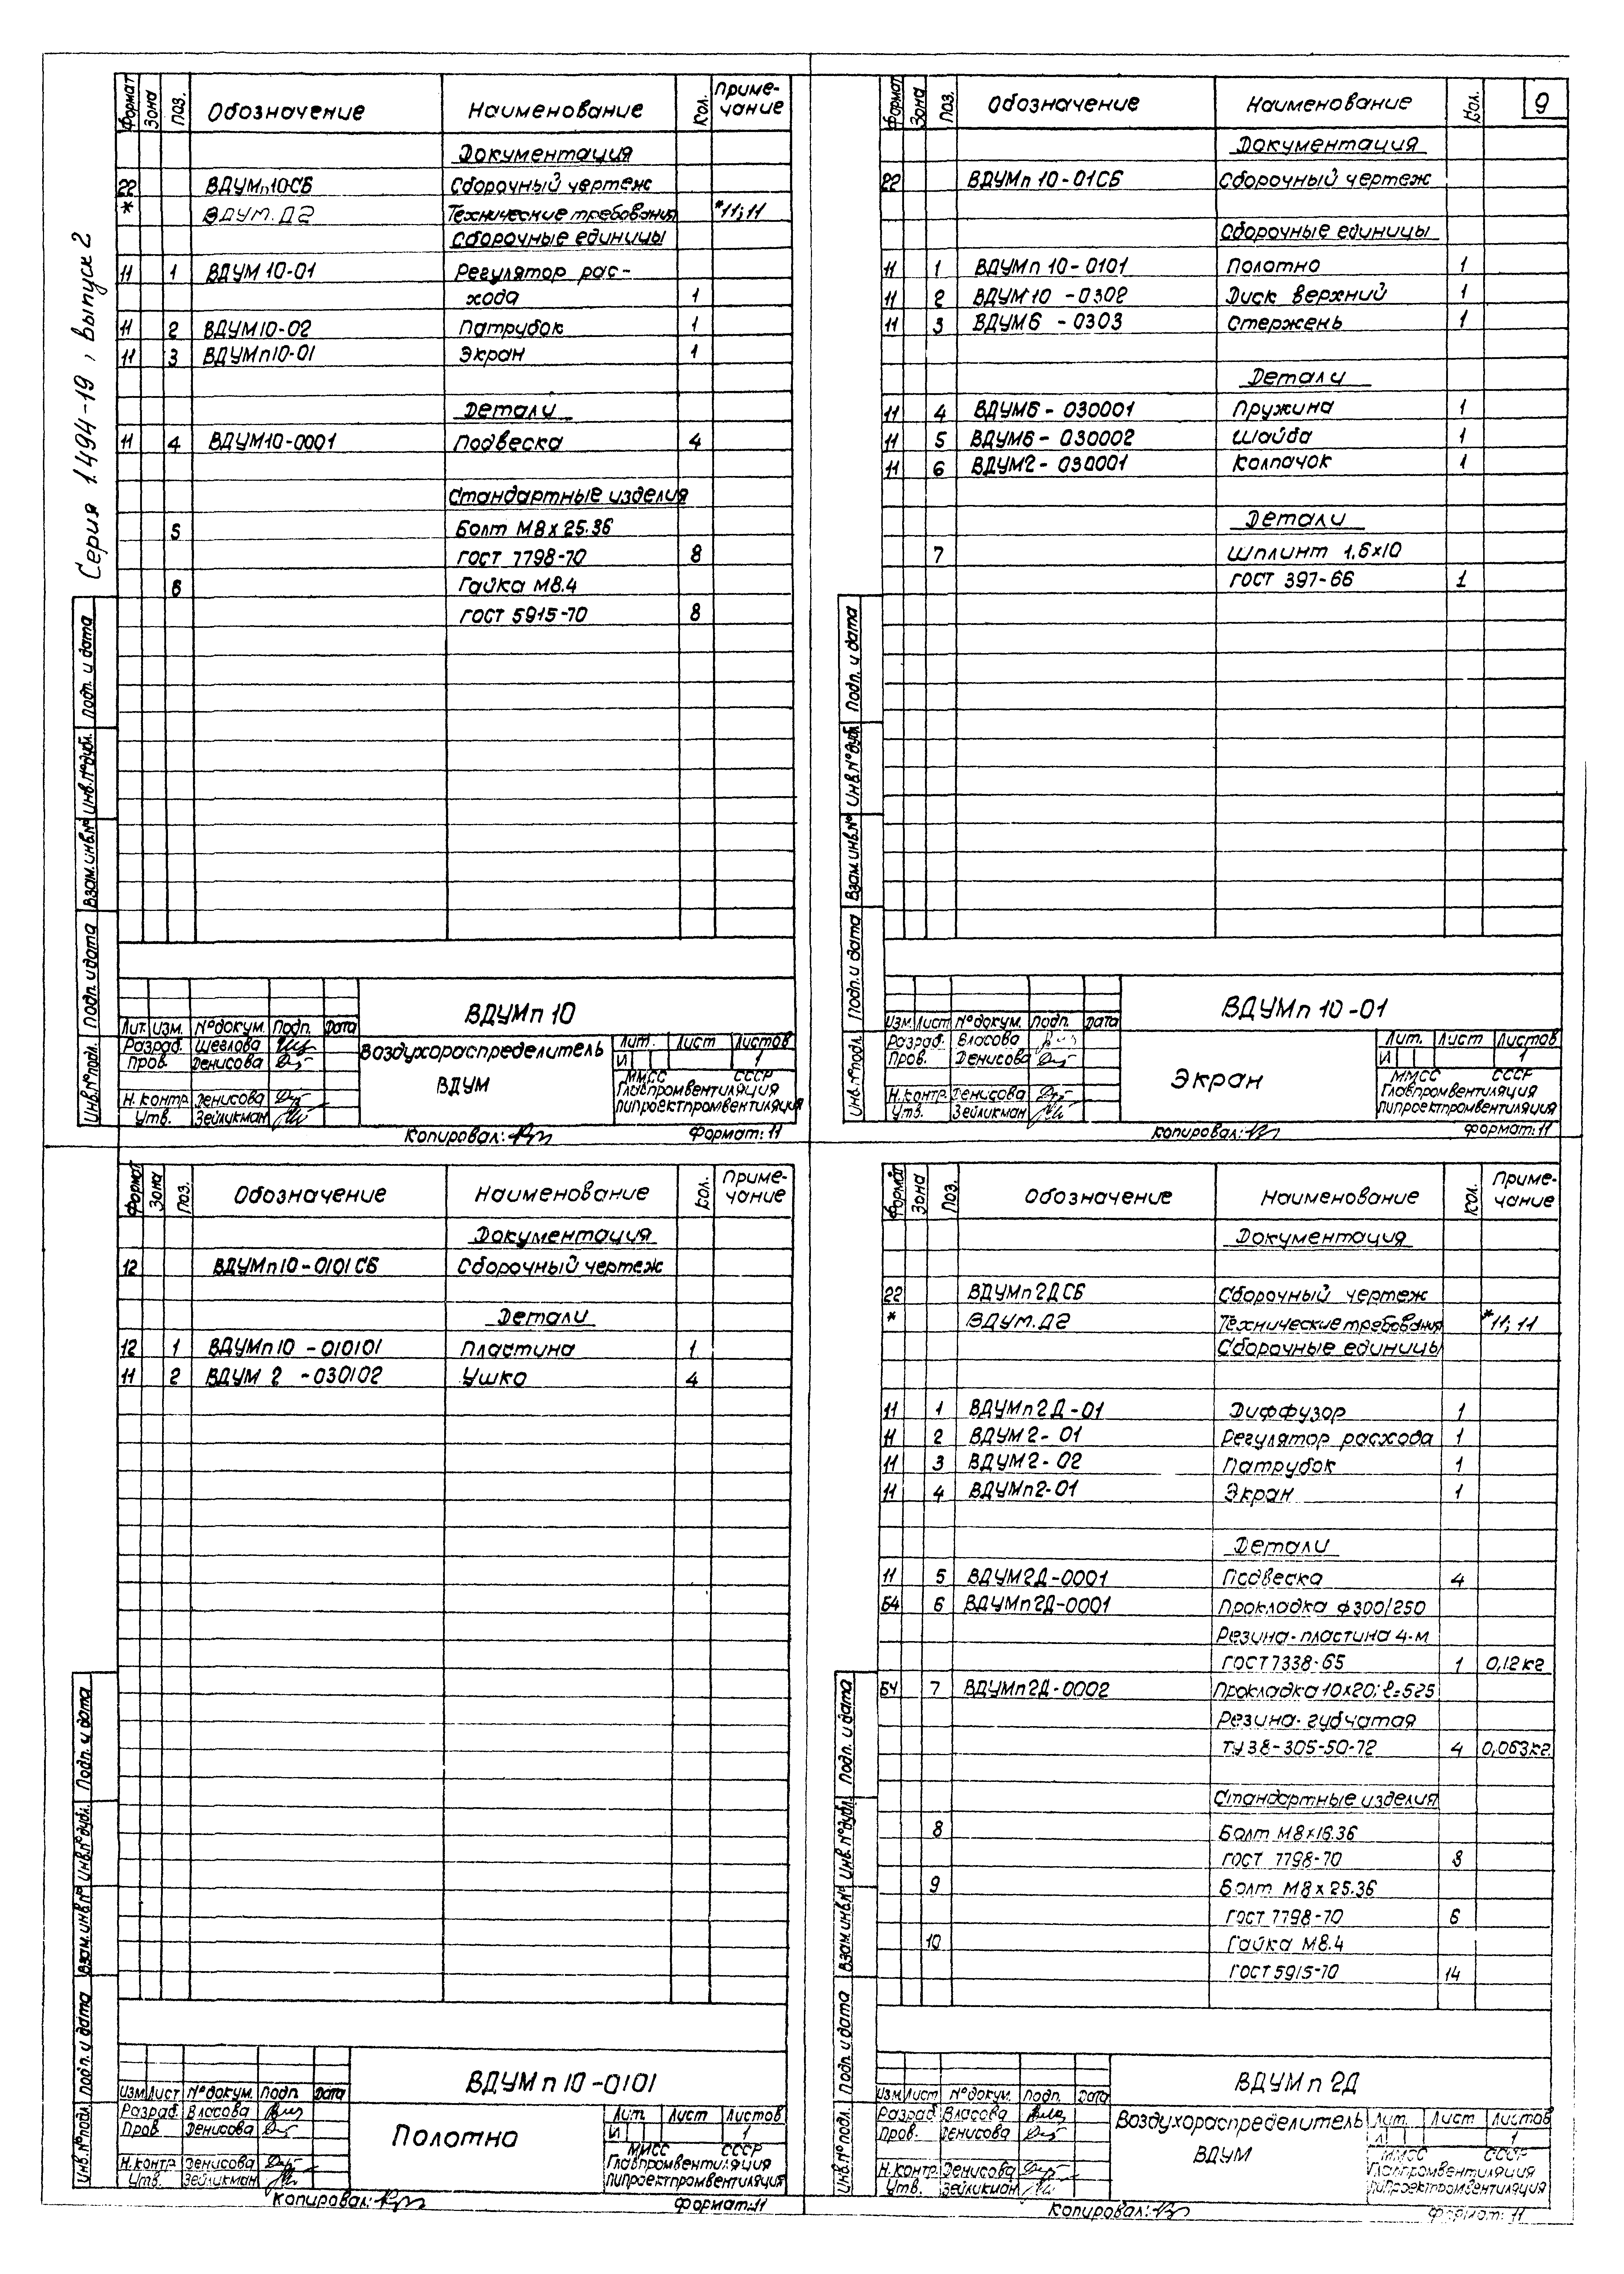 Серия 1.494-19, выпуск 2
Формат Зона Поз. Обозначение Наименование Кол. Примечание
Документация
22 ВДУМп10СБ Сборочный чертеж
* ВДУМ.Д2 Технические требования *11;11
Сборочные единицы
11 1 ВДУМ 10-01 Регулятор рас-
хода 1
11 2 ВДУМ10-02 Патрубок 1
11 3 ВДУМп10-01 Экран 1
Детали
11 4 ВДУМ10-0001 Подвеска 4
Стандартные изделия
5 Болт М8х25.36
ГОСТ 7798-70 8
6 Гайка М8.4
ГОСТ 5915-70 8
Инв.№подл. Подп. и дата Взам.инв.№ Инв.№дубл. Подп. и дата
Лит. Изм. №докум. Подп. Дата
Разраб. Щеглова
Пров. Денисова
Н.контр. Денисова
Утв. Зейликман
ВДУМп 10
Воздухораспределитель
ВДУМ
Лит. Лист Листов
И 1
ММСС СССР
Главпромвентиляция
Гипроектпромвентиляция
Копировал: Формат: 11
9
Формат Зона Поз. Обозначение Наименование Кол.
Документация
22 ВДУМп 10-01СБ Сборочный чертеж
Сборочные единицы
11 1 ВДУМп 10-0101 Полотно 1
11 2 ВДУМ 10 -0302 Диск верхний 1
11 3 ВДУМ6 -0303 Стержень 1
Детали
11 4 ВДУМ6-030001 Пружина 1
11 5 ВДУМ6-030002 Шайба 1
11 6 ВДУМ2-030001 Колпачок 1
Детали
7 Шплинт 1,6х10
ГОСТ 397-66 1
Инв.№подл. Подп. и дата Взам.инв.№ Инв.№дубл. Подп. и дата
Изм. Лист №докум. Подп. Дата
Разраб. Власова
Пров. Денисова
Н.контр. Денисова
Утв. Зейликман
ВДУМп 10-01
Экран
Лит. Лист Листов
И 1
ММСС СССР
Главпромвентиляция
Гипроектпромвентиляция
Копировал: Формат: 11
Формат Зона Поз. Обозначение Наименование Кол. Примечание
Документация
12 ВДУМп10-0101СБ Сборочный чертеж
Детали
12 1 ВДУМп10 -010101 Пластина 1
11 2 ВДУМ 2 -030102 Ушко 4
Инв.№подл. Подп. и дата Взам.инв.№ Инв.№дубл. Подп. и дата
Изм. Лист №докум. Подп. Дата
Разраб. Власова
Пров. Денисова
Н.контр. Денисова
Утв. Зейликман
ВДУМп 10-0101
Полотна
Лит. Лист Листов
И 1
ММСС СССР
Главпромвентиляция
Гипроектпромвентиляция
Копировал: Формат: 11
Формат Зона Поз. Обозначение Наименование Кол. Примечание
Документация
22 ВДУМп2ДСБ Сборочный чертеж
* ВДУМ.Д2 Технические требования *11;11
Сборочные единицы
11 1 ВДУМп2Д-01 Диффузор 1
11 2 ВДУМ2-01 Регулятор расхода 1
11 3 ВДУМ2-02 Патрубок 1
11 4 ВДУМп2-01 Экран 1
Детали
11 5 ВДУМ2Д-0001 Подвеска 4
Б4 6 ВДУМп2Д-0001 Прокладка ф300/250
Резина-пластина 4-м
ГОСТ7338-65 1 0,12кг
БЧ 7 ВДУМп2Д-0002 Прокладка10х20; ℓ=525
Резина-губчатая
ТУ38-305-50-72 4 0,063кг.
Стандартные изделия
8 Болт М8х16.36
ГОСТ 7798-70 8
9 Болт М8х25.36
ГОСТ 7798-70 6
10 Гайка М8.4
ГОСТ5915-70 14
Инв.№подл. Подп. и дата Взам.инв.№ Инв.№дубл. Подп. и дата
Изм. Лист №докум. Подп. Дата
Разраб. Власова
Пров. Денисова
Н.контр. Денисова
Утв. Зейликман
ВДУМп 2Д
Воздухораспределитель
ВДУМ
Лит. Лист Листов
И 1
ММСС СССР
Главпромвентиляция
Гипроектпромвентиляция
Копировал: Формат: 11